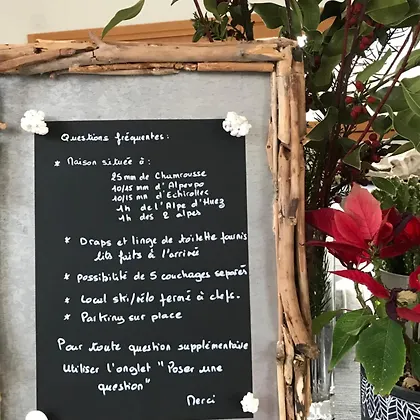 Questions fréquentes :
* Maison située à :
25 mn de Chamrousse
10/15 mn d'Alpexpo
10/15 mn d'Echirolles
1h de l'Alpe d'Huez
1h des 2 alpes
* Draps et linge de toilette fournis
lits faits à l'arrivée
* possibilité de 5 couchages séparés
* Local ski/vélo fermé à clefs.
* Parking sur place
Pour toute question supplémentaire
Utiliser l'onglet "Poser une
question"
Merci